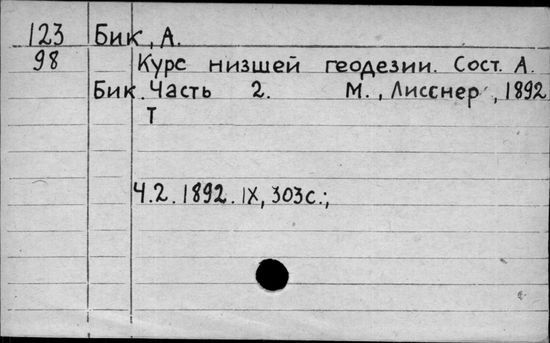 123 Бик, А.
98 Курс низшей геодезии. Сост. А.
Бик. Часть 2. М., Лисснер, 1892
Т
Ч.2. 1892. IX, 303с.;